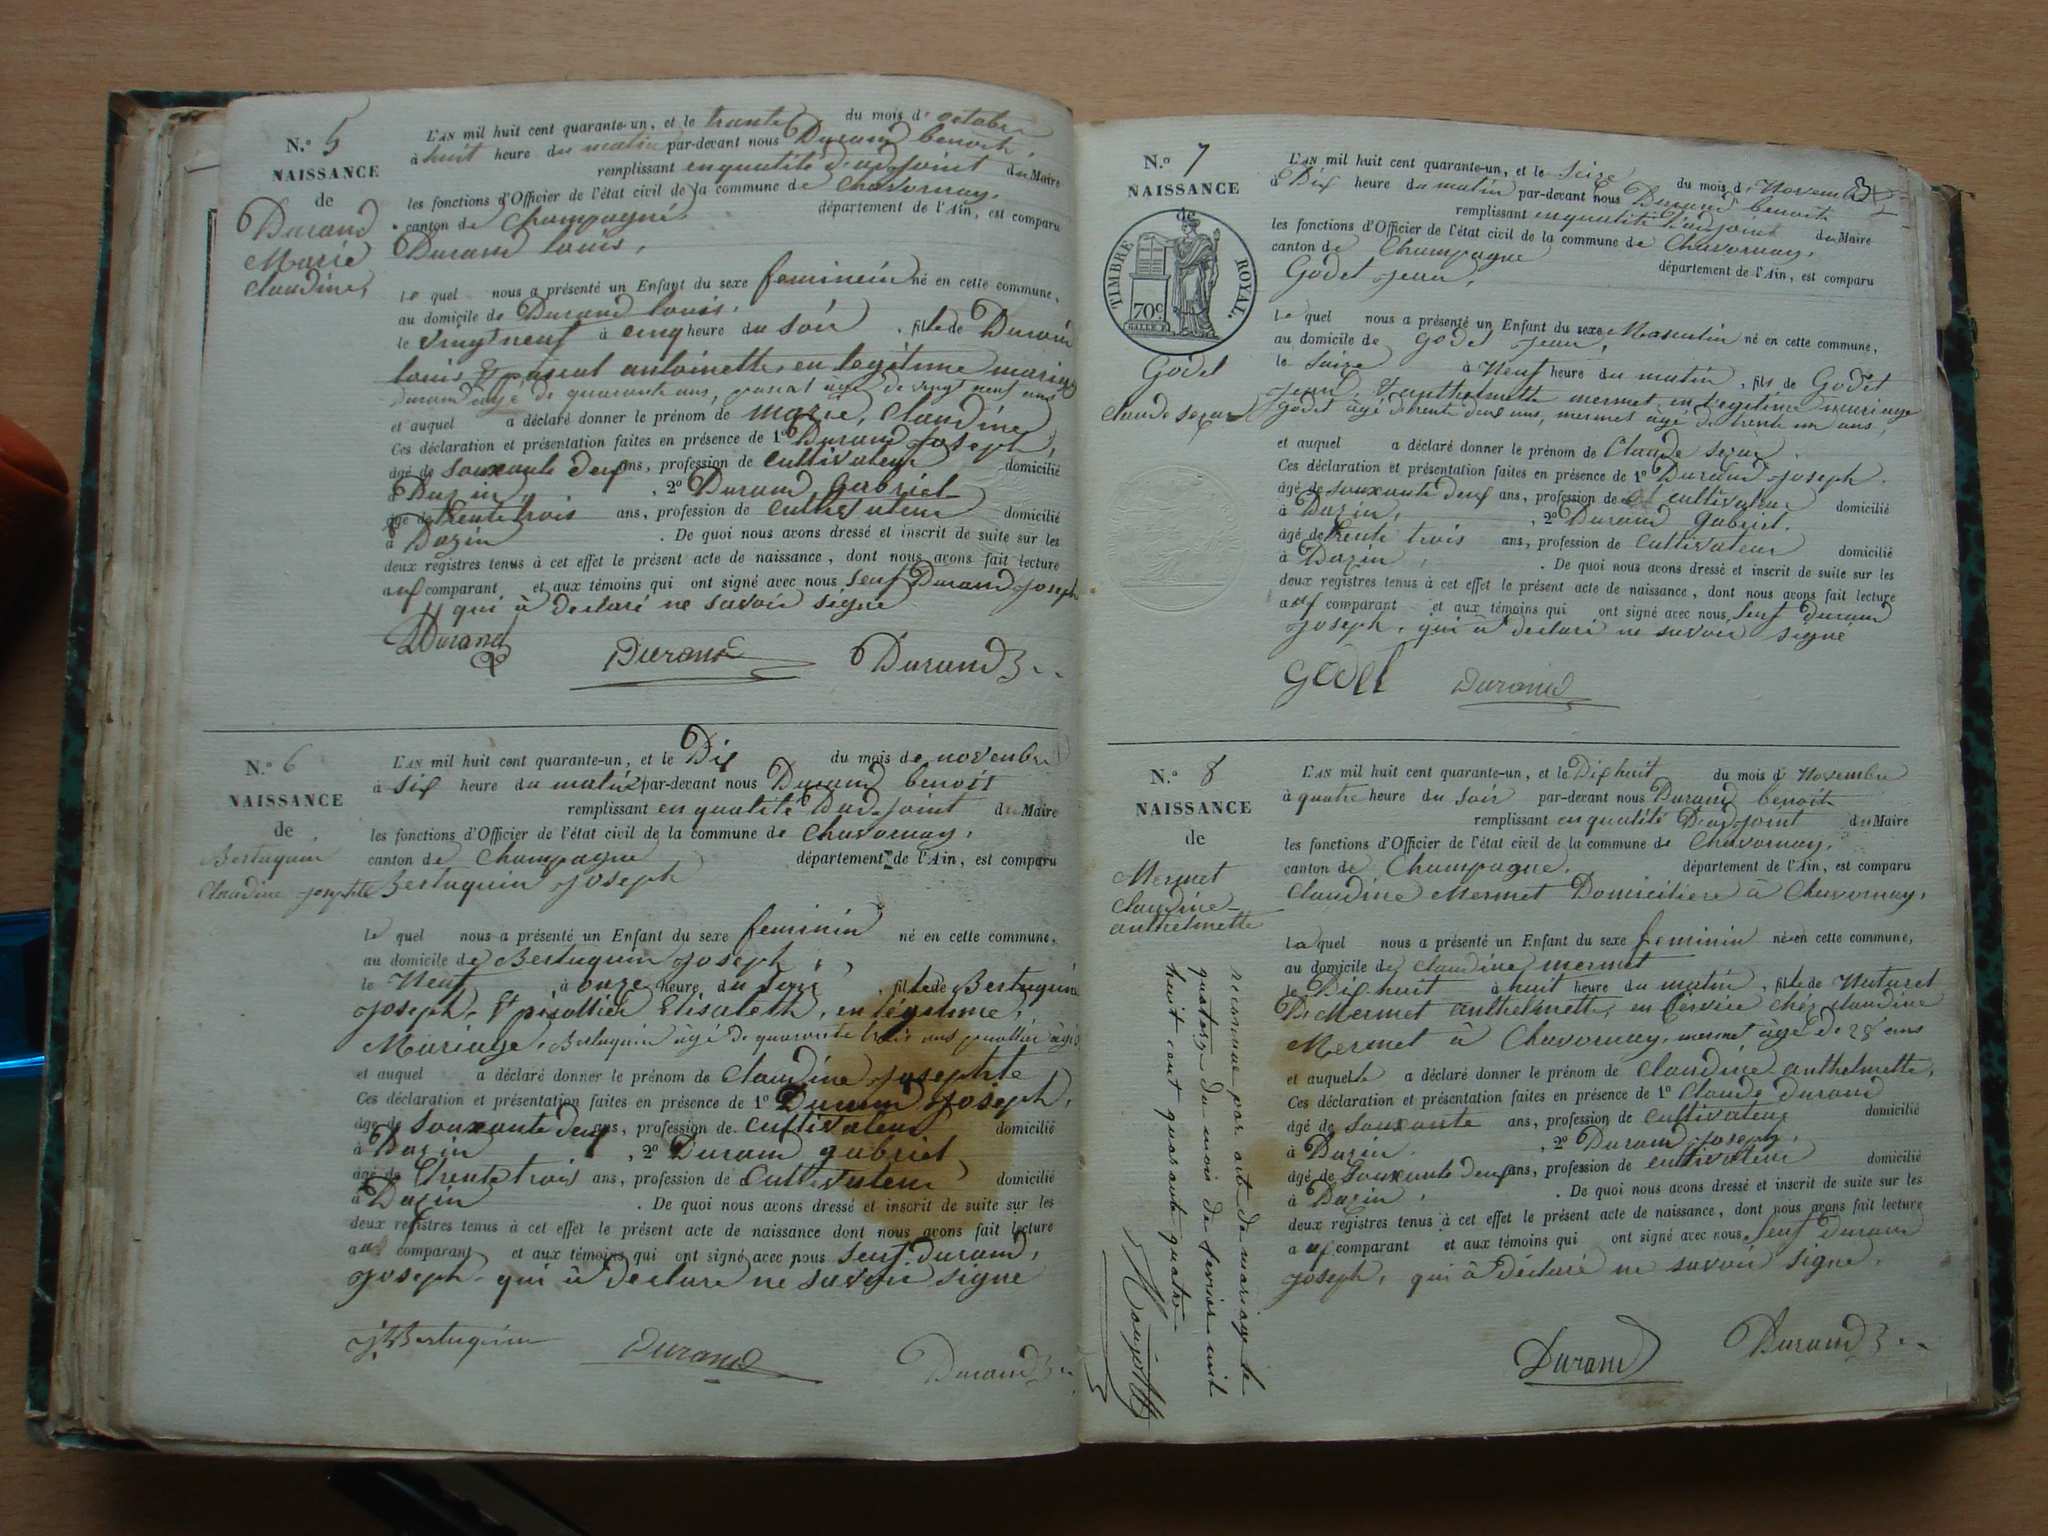 N.º 5
NAISSANCE
de
Durand
Marie
claudine
L'AN mil huit cent quarante-un, et le trente du mois d' octobre
à huit heure du matin par-devant nous Durand benoit
remplissant en qualité d'adjoint du Maire
les fonctions d'Officier de l'état civil de la commune de Chavornay,
canton de Champagne département de l'Ain, est comparu
Durand louis,
le quel nous a présenté un Enfant du sexe feminein né en cette commune,
au domicile de Durand louis,
le vingt neuf à cinq heure du soir, fille de Durand
louis, Et pascal antoinette, en legitime mariage
Durand agé de quarante ans, pascal âgé de vingt neuf ans
et auquel a déclaré donner le prénom de marie, claudine
Ces déclaration et présentation faites en présence de 1º Durand Joseph,
âgé de souxante deux ans, profession de cultivateur domicilié
à Dazin, 2º Durand gabriel
âgé de trente trois ans, profession de cultivateur domicilié
à Dazin. De quoi nous avons dressé et inscrit de suite sur les
deux registres tenus à cet effet le présent acte de naissance, dont nous avons fait lecture
aux comparant et aux témoins qui ont signé avec nous seuf Durand joseph
qui à declaré ne savoir signé
Durand Durand Durand
N.º 6
NAISSANCE
de
Bertuquin
Claudine josephte
L'AN mil huit cent quarante-un, et le Dix du mois de novembre
à six heure du matin par-devant nous Durand benoit
remplissant en qualité D'adjoint du Maire
les fonctions d'Officier de l'état civil de la commune de Chavornay,
canton de Champagne département de l'Ain, est comparu
Bertuquin joseph
le quel nous a présenté un Enfant du sexe feminin né en cette commune,
au domicile de Bertuquin joseph,
le Neuf à onze heure du soir, fille de Bertuquin
joseph, Et Elisabeth, en légitime,
Mariage, Bertuquin âgé de quarante trois ans
et auquel a déclaré donner le prénom de claudine josephte
Ces déclaration et présentation faites en présence de 1º Durand joseph,
âgé de souxante deux ans, profession de cultivateur domicilié
à Dazin, 2º Durand gabriel
âgé de trente trois ans, profession de Cultivateur domicilié
à Dazin. De quoi nous avons dressé et inscrit de suite sur les
deux registres tenus à cet effet le présent acte de naissance dont nous avons fait lecture
aux comparant et aux témoins qui ont signé avec nous seuf durand,
joseph, qui à declaré ne savoir signe
j. Bertuquin Durand Durand
N.º 7
NAISSANCE
de
TIMBRE ROYAL.
70c.
Godet
claude
L'AN mil huit cent quarante-un, et le seize du mois d' Novembre
à Dix heure du matin par-devant nous Durand benoit
remplissant en qualité d'adjoint du Maire
les fonctions d'Officier de l'état civil de la commune de Chavornay,
canton de Champagne département de l'Ain, est comparu
Godet jean,
le quel nous a présenté un Enfant du sexe Masculin né en cette commune,
au domicile de godet jean,
le seize à Neuf heure du matin, fils de Godet
jean, Et anthelmette mermet en legitime mariage
godet âgé de trente deux ans, mermet âgé de trente un ans,
et auquel a déclaré donner le prénom de Claude
Ces déclaration et présentation faites en présence de 1º Durand joseph.
âgé de souxante deux ans, profession de cultivateur domicilié
à Dazin, 2º Durand gabriel.
âgé de trente trois ans, profession de cultivateur domicilié
à Dazin, . De quoi nous avons dressé et inscrit de suite sur les
deux registres tenus à cet effet le présent acte de naissance, dont nous avons fait lecture
aux comparant et aux témoins qui ont signé avec nous, seuf durand
joseph, qui à declaré ne savoir signé
Godet Durand
N.º 8
NAISSANCE
de
Mermet
claudine
anthelmette
reconnue par acte de mariage le
quatorze du mois de fevrier mil
huit cent quarante quatre
L'AN mil huit cent quarante-un, et le Dix huit du mois d Novembre
à quatre heure du soir par-devant nous Durand benoit
remplissant en qualité D'adjoint du Maire
les fonctions d'Officier de l'état civil de la commune de Chavornay,
canton de Champagne, département de l'Ain, est comparu
Claudine Mermet Domiciliere a Chavornay,
la quel nous a présenté un Enfant du sexe feminin né en cette commune,
au domicile de claudine mermet
le Dix-huit à huit heure du matin, fille de Naturel
De Mermet anthelmette, en service chéz claudine
Mermet à Chavornay, mermet agé de 28 ans
et auquelle a déclaré donner le prénom de claudine anthelmette,
Ces déclaration et présentation faites en présence de 1º Claude durand
âgé de souxante ans, profession de cultivateur domicilié
à Dazin, 2º Durand joseph,
âgé de souxante deux ans, profession de cultivateur domicilié
à Dazin, . De quoi nous avons dressé et inscrit de suite sur les
deux registres tenus à cet effet le présent acte de naissance, dont nous avons fait lecture
aux comparant et aux témoins qui ont signé avec nous, seuf Durand
joseph, qui à déclaré ne savoir signe,
Durand Durand